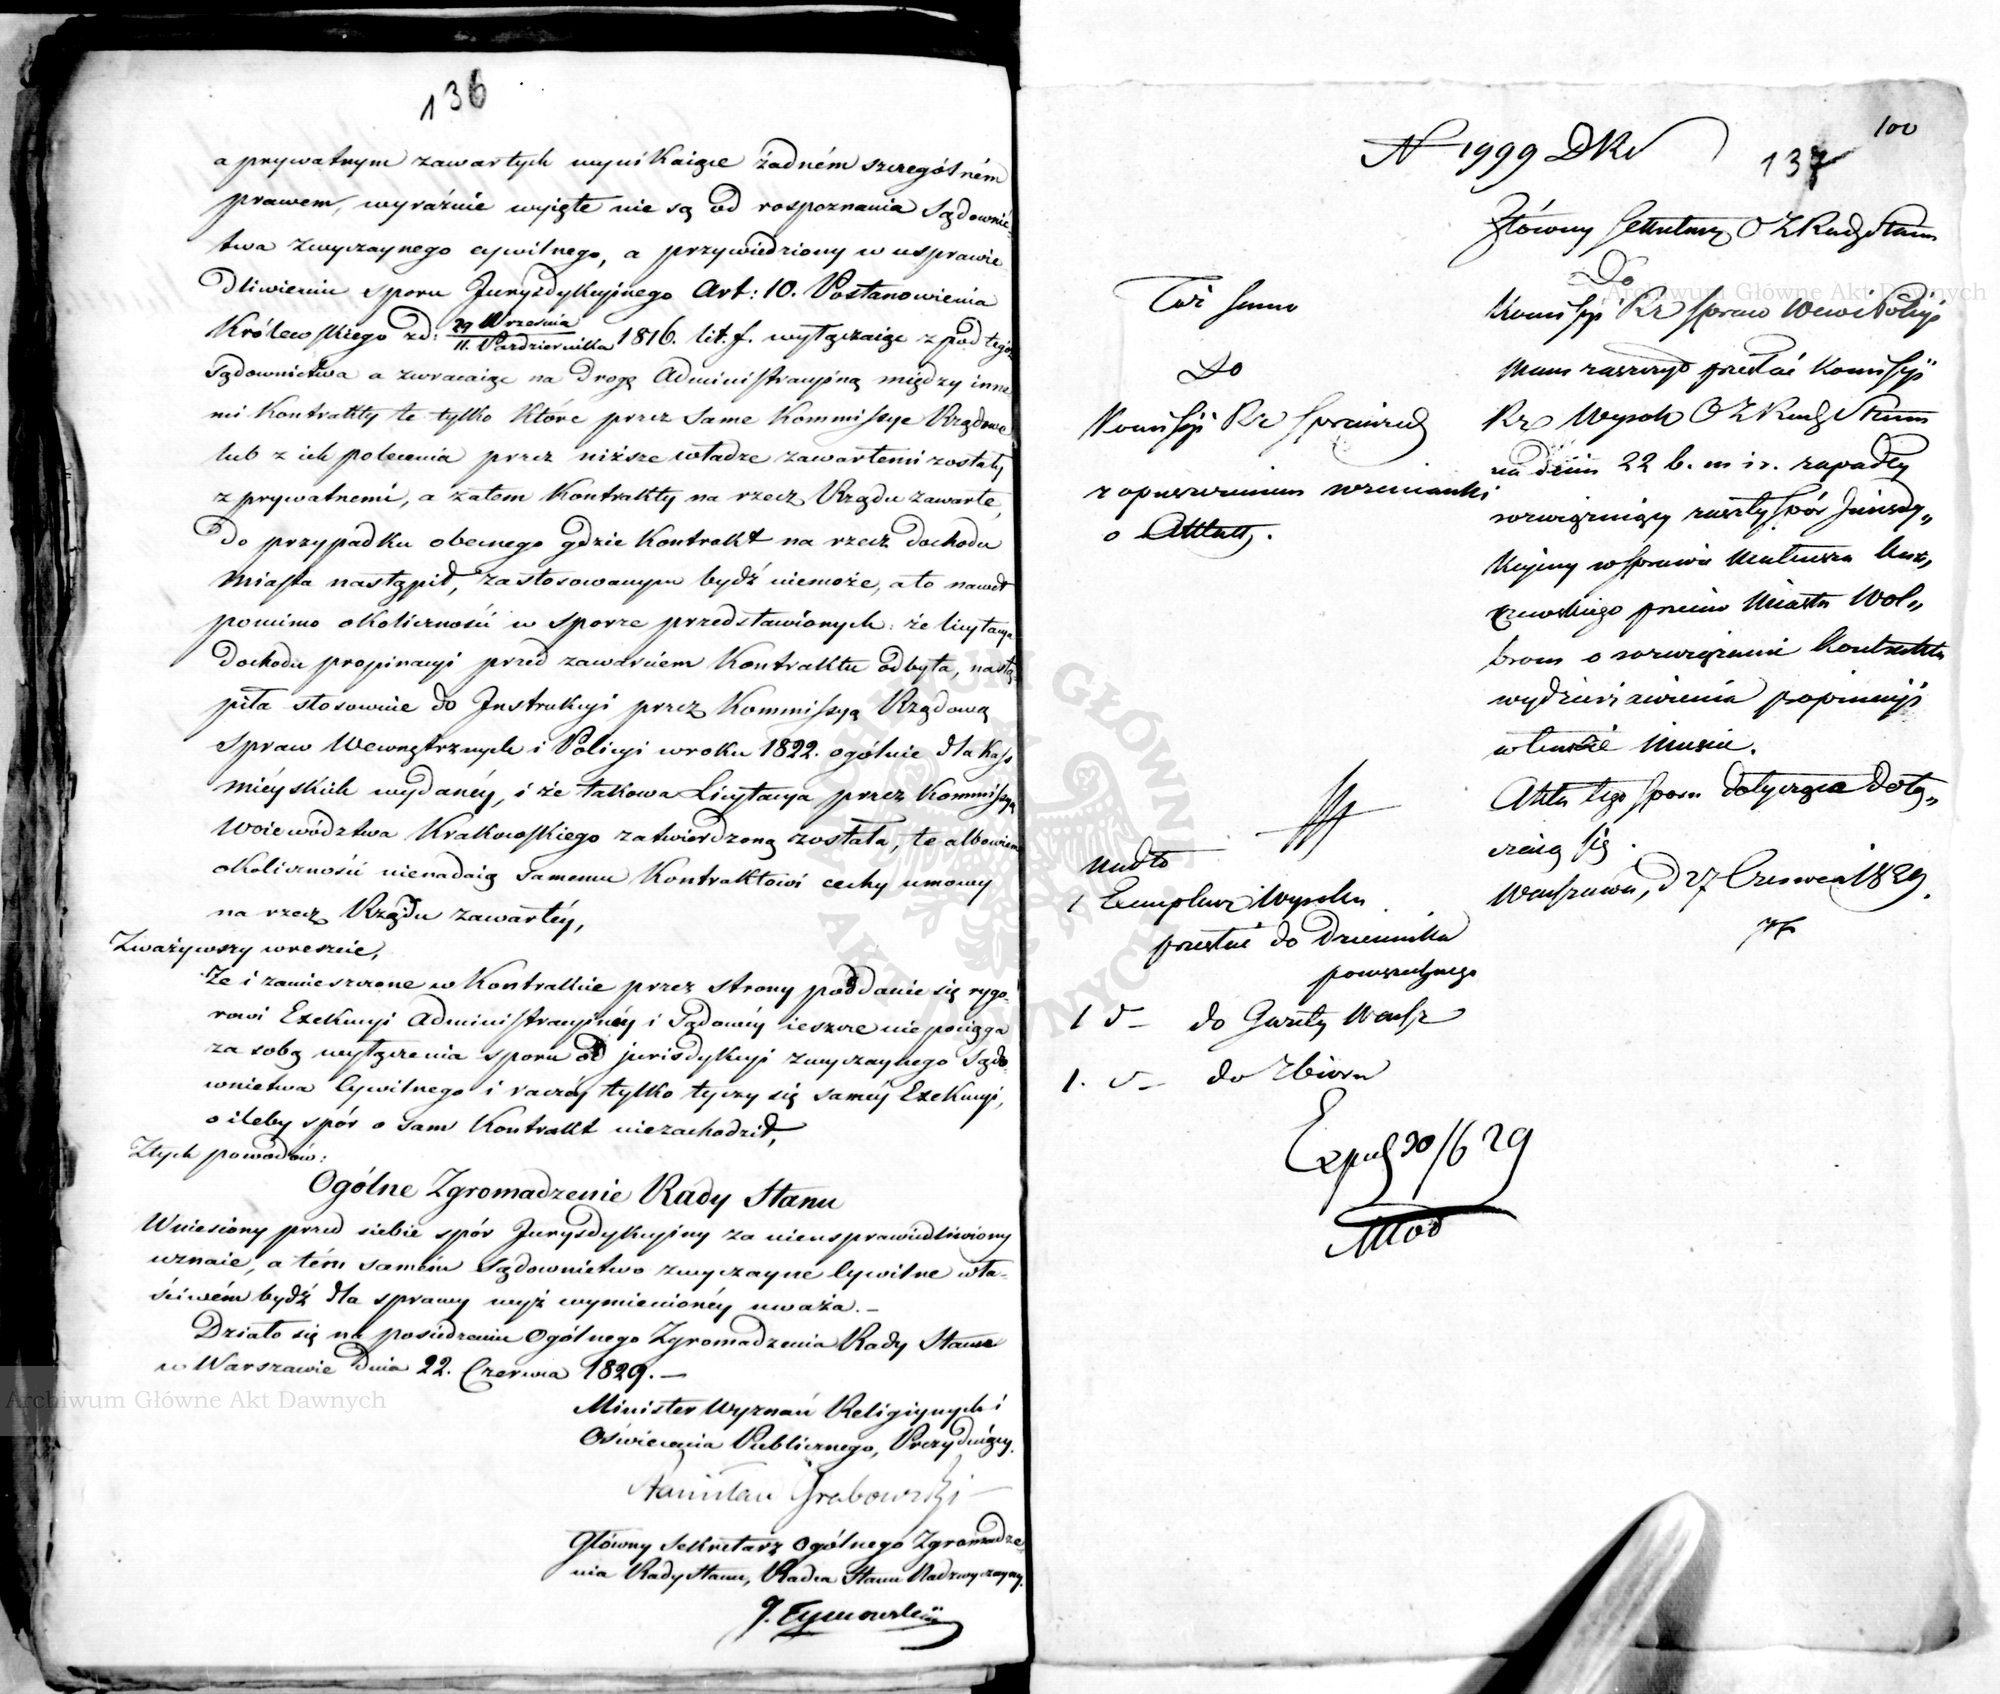 136
a prywatnym zawartych wynikaiące żadném szczególném
prawem, wyraźnie wyięte nie są od rozpoznania Sądownic-
twa zwyczaynego cywilnego, a przywiedziony w usprawie
dliwieniu sporu Jurysdykcyjnego Art: 10. Postanowienia
Królewskiego zd: 29 Września / 11. Października 1816. lit. f. wyłączaiąc z pod tegoż
Sądownictwa a zwracaiąc na drogę Administracyiną między inne
mi Kontrakty te tylko które przez same Kommissye Rządowe
lub z ich polecenia przez niższe władze zawartemi zostały
z prywatnemi, a zatem Kontrakty na rzecz Rządu zawarte,
do przypadku obecnego gdzie Kontrakt na rzecz dochodu
Miasta nastąpił, zastosowanym bydź niemoże, a to nawet
pomimo okoliczności w sporze przedstawionych: że licytacya
dochodu propinacyi przed zawarciem Kontraktu odbyta, nastą-
piła stosownie do Instrukcyi przez Kommissyą Rządową
Spraw Wewnętrznych i Policyi w roku 1822. ogólnie dla Kass
Mieyskich wydaney, i że takowa Licytacya przez Kommissyą
Woiewództwa Krakowskiego zatwierdzoną została, te albowiem
okoliczności nienadaią samemu Kontraktowi cechy umowy
na rzecz Rządu zawartéy,
Zważywszy wreszcie,
Że i zamieszczone w Kontrakcie przez strony poddanie się rygo-
rowi Exekucyi Administracyinéy i Sądowéy ieszcze nie pociąga
za sobą wyłączenia sporu od jurisdykcyi zwyczaynego Sądo-
wnictwa Cywilnego i raczéy tylko tyczy się saméy Exekucyi,
o ileby spór o sam Kontrakt niezachodził,
Z tych powodów:
Ogólne Zgromadzenie Rady Stanu
Wniesiony przed siebie spór Jurysdykcyiny za nieusprawiedliwiony
uznaie, a tém samém Sądownictwo zwyczayne Cywilne wła-
ściwém bydź dla sprawy wyż wymienionéy uważa. —
Działo się na posiedzeniu Ogólnego Zgromadzenia Rady Stanu
w Warszawie dnia 22. Czerwca 1829. —
Minister Wyznań Religiynych i
Oświecenia Publicznego, Prezyduiący.
Stanisław Grabowski
Główny Sekretarz Ogólnego Zgromadze-
nia Rady Stanu, Radca Stanu Nadzwyczayny.
J. Tymowski
100
N 1999 DKs
137
Główny Sekretarz O Z Rady Stanu
Do
Komissyi Rz Spraw Wew i Policyi
Mam zaszczyt przesłać Komissyi
Rz Wypis O Z Rady Stanu
na dniu 22 b. m i r. zapadłey
rozwiązuiący zaszły spór Jurisdy„
kcyiny w sprawie Mateusza
przeciw Miastu Wol„
brom o rozwiązanie kontraktu
wydzierżawienia propinacyi
w temże mieście.
Akta tego sporu dotyczące dołą„
czaią się.
Warszawa, d 27 Czerwca 1829.
Tenże sam
Do
Komissyi Rz Sprawied
z opuszczeniem wzmianki
o Aktach.
Nadto
1 Exemplarz Wypisu
przesłać do Dziennika
powszechnego
1 d— do Gazety Warsz
1. d— do zbioru
Exped 30/6 29